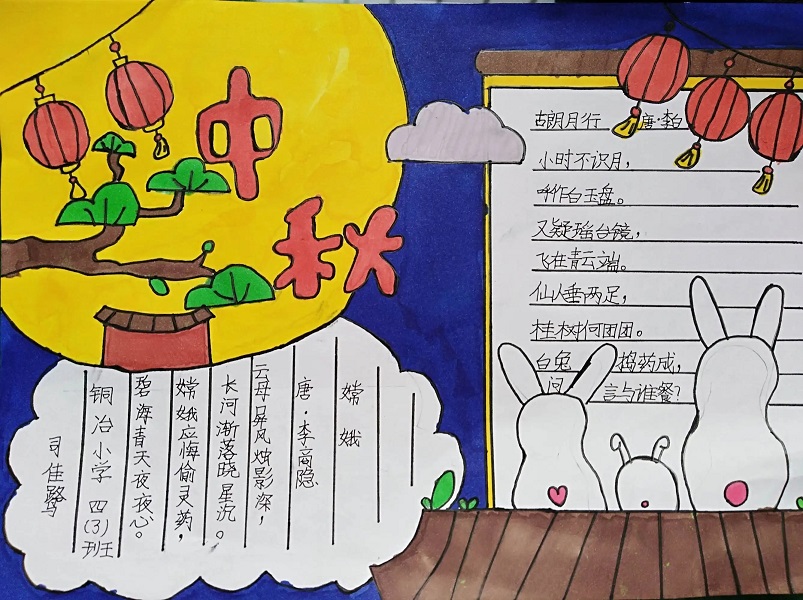 中秋
古朗月行 唐·李白
小时不识月，
呼作白玉盘。
又疑瑶台镜，
飞在青云端。
仙人垂两足，
桂树何团团。
白兔捣药成，
问言与谁餐？
嫦娥
唐·李商隐
云母屏风烛影深，
长河渐落晓星沉。
嫦娥应悔偷灵药，
碧海青天夜夜心。
铜冶小学 四（3）班
司佳璐